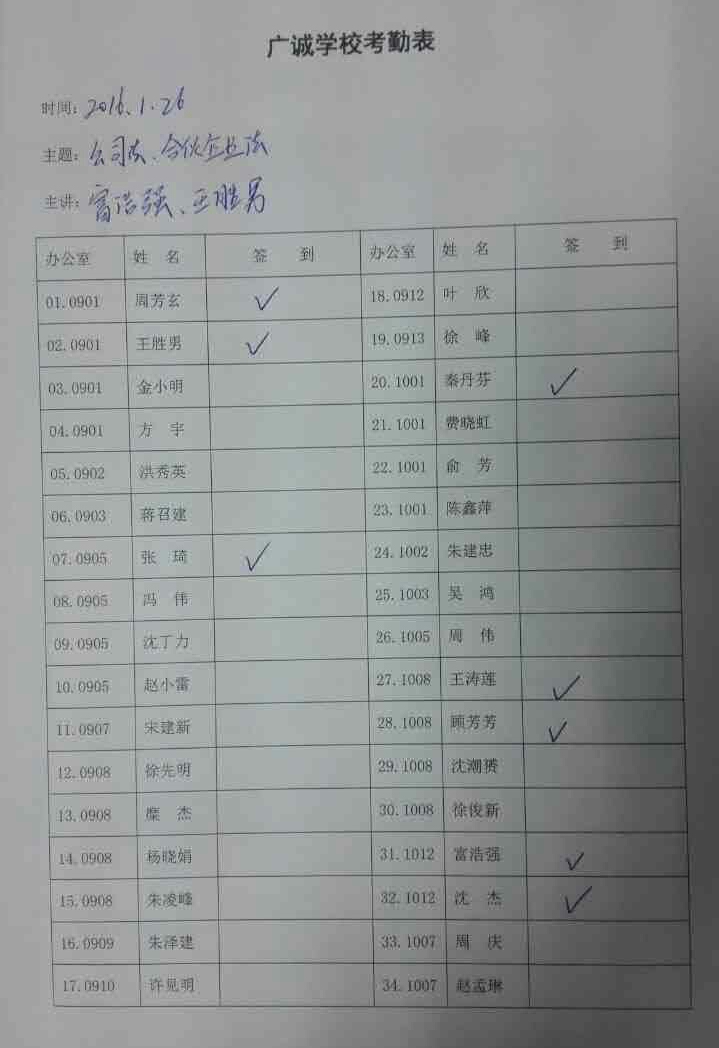 广诚学校考勤表
时间：2016.1.26
主题：公司法、合伙企业法
主讲：富浩强、王胜男
办公室 姓 名 签 到 办公室 姓 名 签 到
01.0901 周芳玄 ✓ 18.0912 叶 欣
02.0901 王胜男 ✓ 19.0913 徐 峰
03.0901 金小明 20.1001 秦丹芬 ✓
04.0901 方 宇 21.1001 费晓虹
05.0902 洪秀英 22.1001 俞 芳
06.0903 蒋召建 23.1001 陈鑫萍
07.0905 张 琦 ✓ 24.1002 朱建忠
08.0905 冯 伟 25.1003 吴 鸿
09.0905 沈丁力 26.1005 周 伟
10.0905 赵小雷 27.1008 王涛莲 ✓
11.0907 宋建新 28.1008 顾芳芳 ✓
12.0908 徐先明 29.1008 沈潮赟
13.0908 糜 杰 30.1008 徐俊新
14.0908 杨晓娟 31.1012 富浩强 ✓
15.0908 朱凌峰 32.1012 沈 杰 ✓
16.0909 朱泽建 33.1007 周 庆
17.0910 许见明 34.1007 赵孟琳